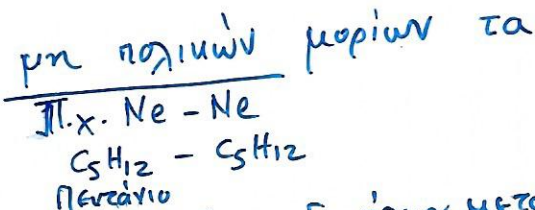 μη πολικών μορίων τα
Π.χ. Ne - Ne
C5H12 - C5H12
Πεντάνιο
μετα